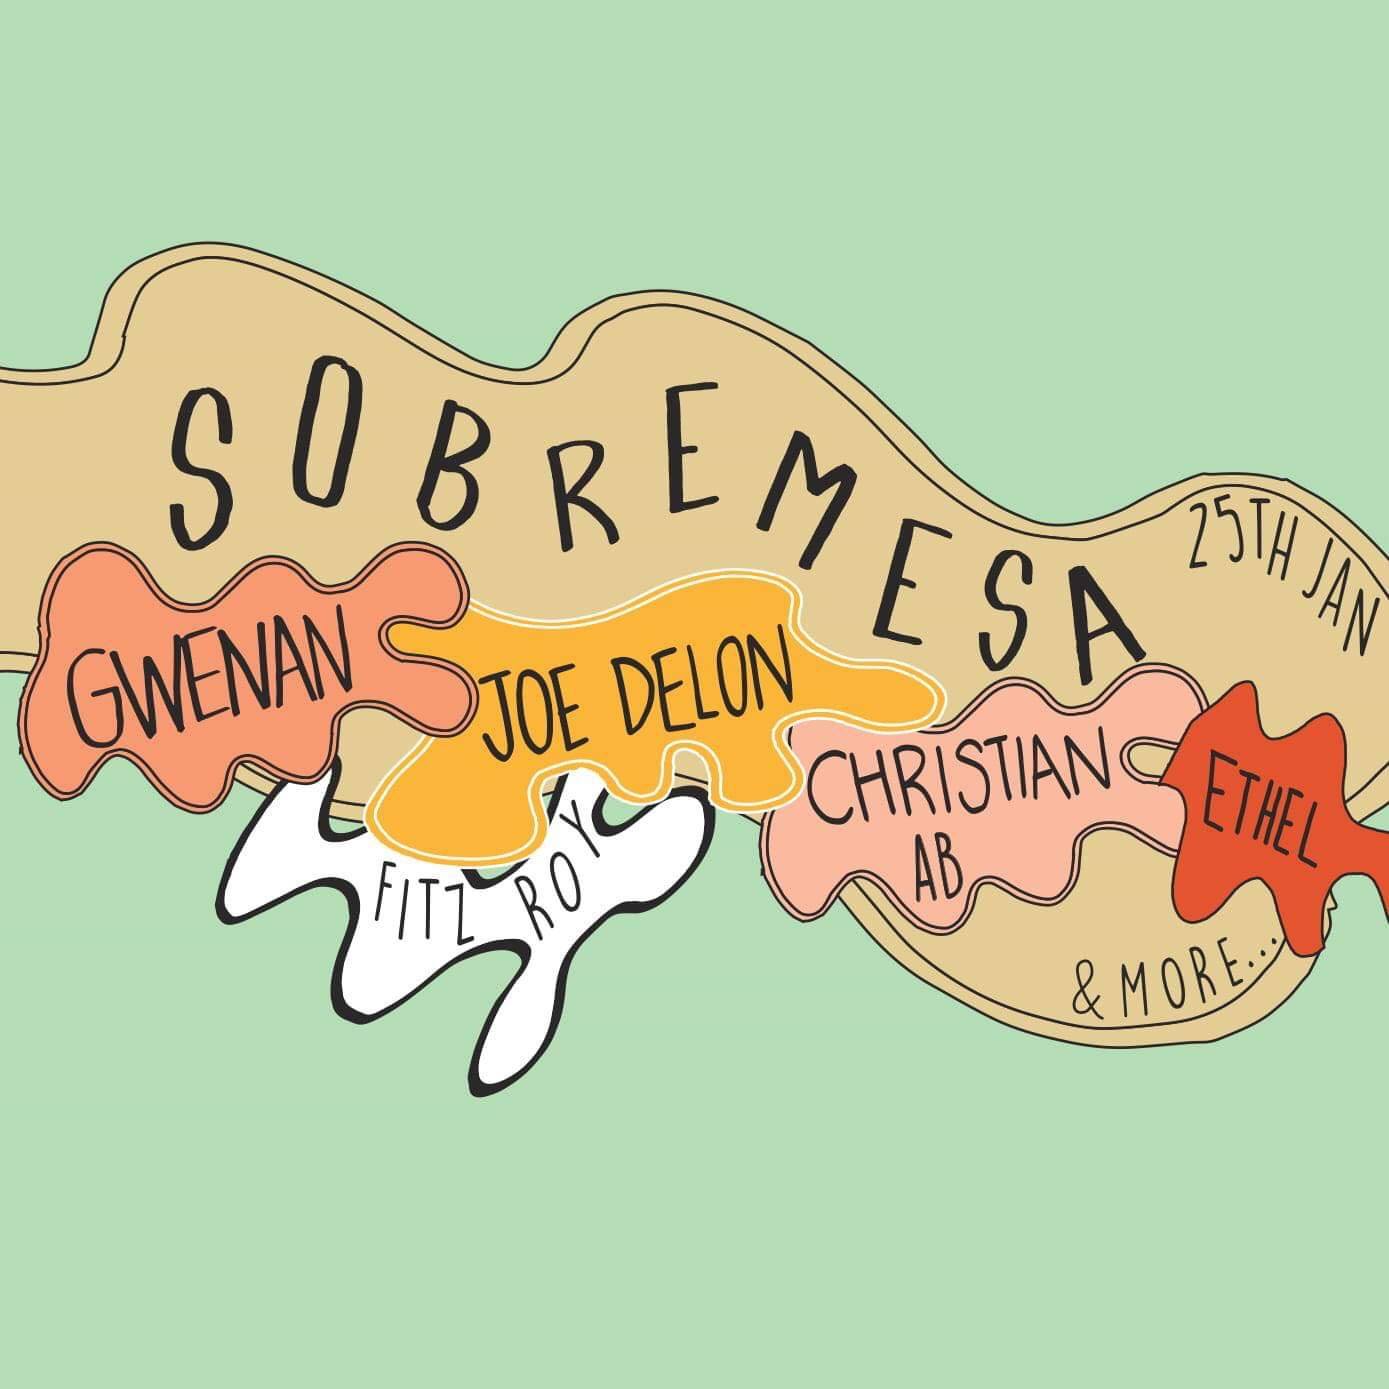 SOBREMESA
25TH JAN
GWENAN
JOE DELON
CHRISTIAN
AB
ETHEL
FITZ ROY
& MORE...